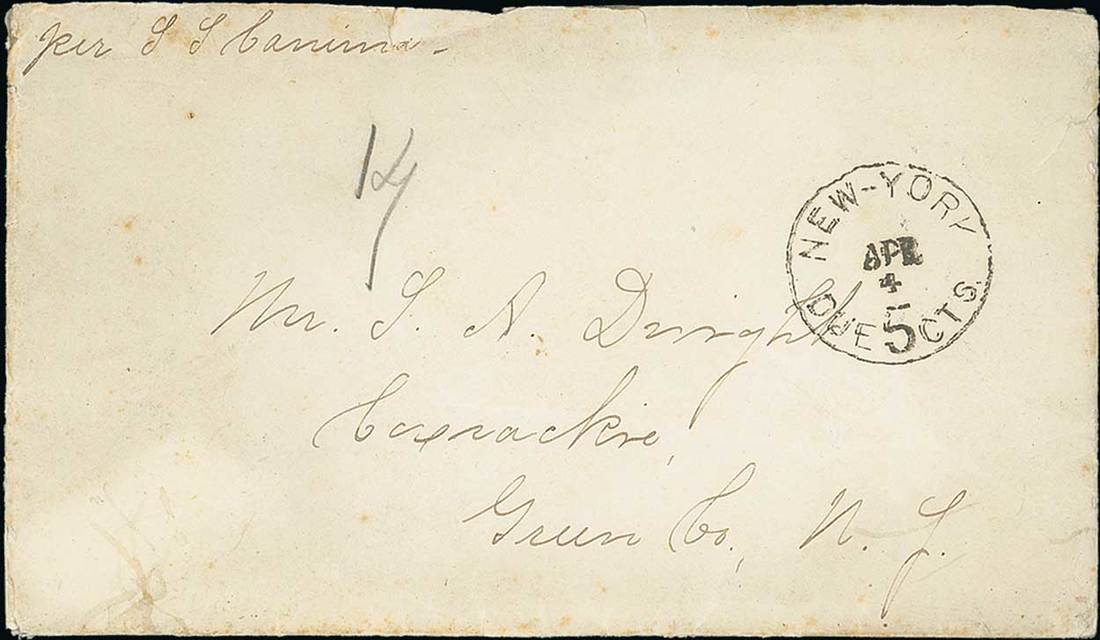 per S S Canima -
14
NEW-YORK
APR
4
DUE 5 CTS
Mr. S. A. Dwight
Coxsackie,
Green Co., N. Y.